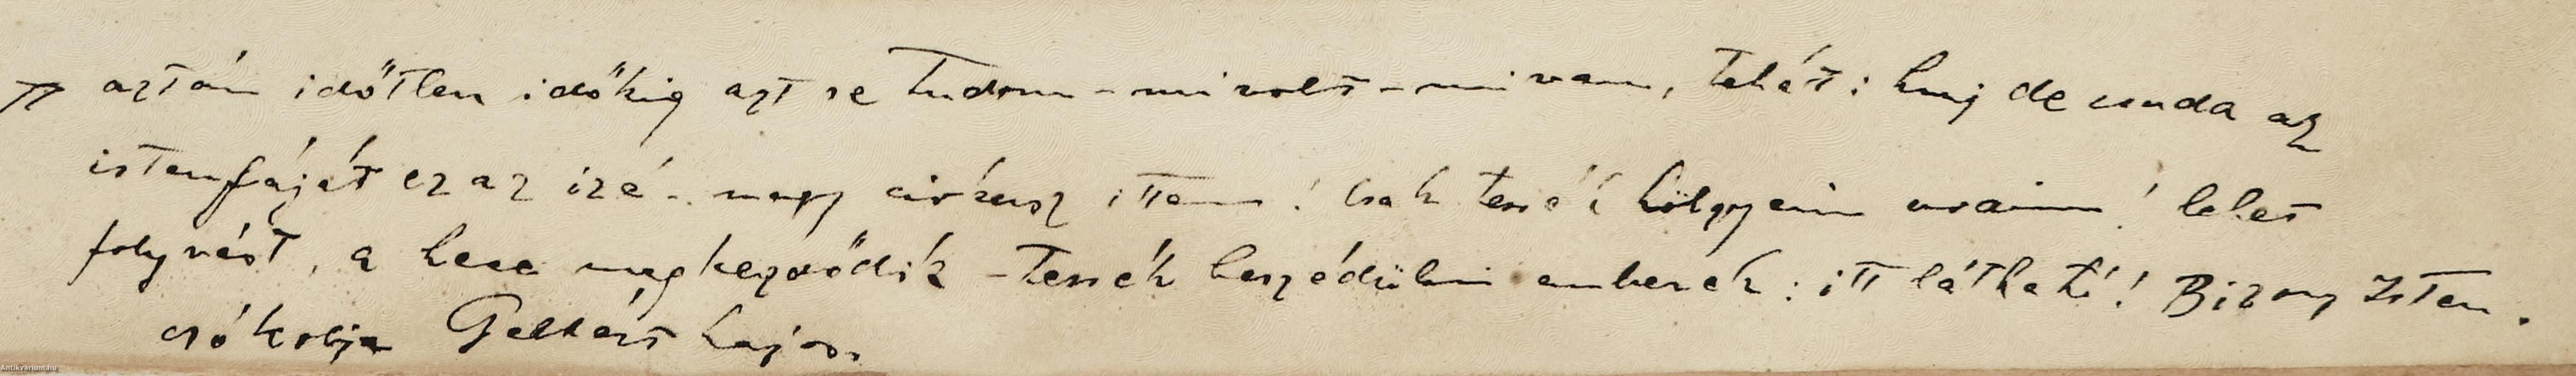 aztán időtlen időkig azt se tudom - mi volt - mi van, tehát: huj de csuda az
istenfáját ez az izé - nagy cirkusz ittem! Csak tessék hölgyeim uraim! lehet
folyvást, a heca megkezdődik - tessék beszédülni emberek: itt látható! Bizony Isten.
csókolja Gellért Lajos.
Antikvarium.hu